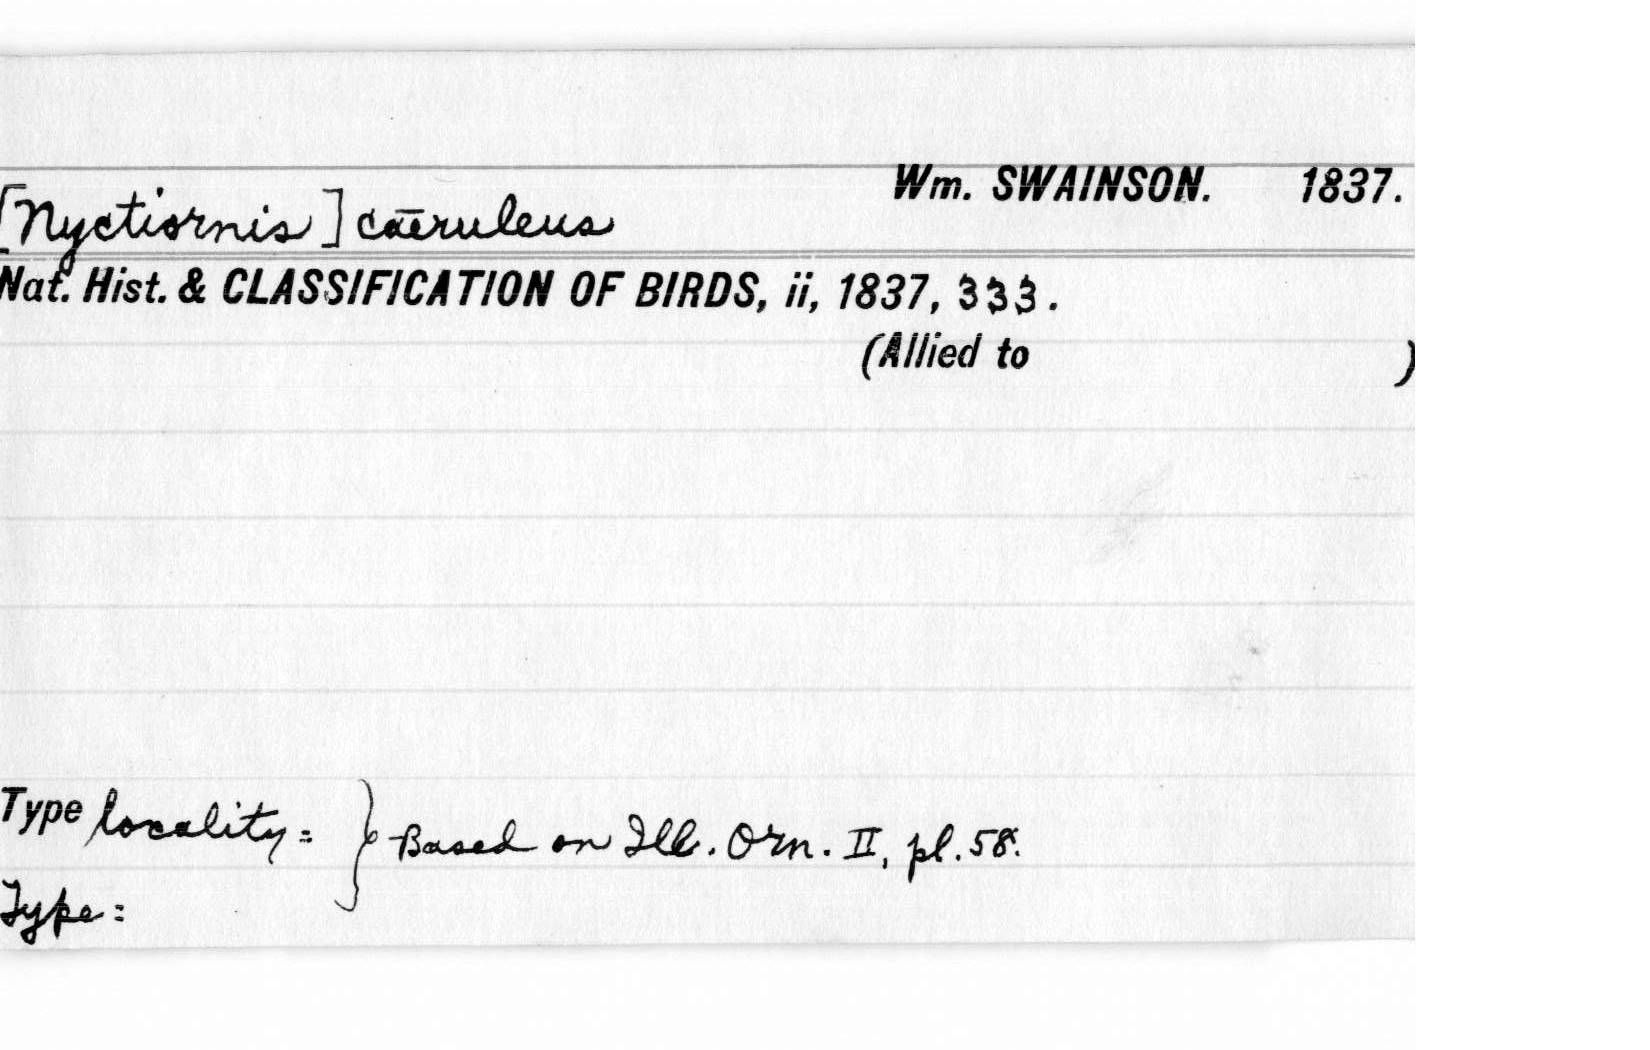 Wm. SWAINSON. 1837.
[Nyctiornis] cāeruleus
Nat. Hist. & CLASSIFICATION OF BIRDS, ii, 1837, 333.
(Allied to )
Type locality = } Based on Ill. Orn. II, pl. 58.
Type =